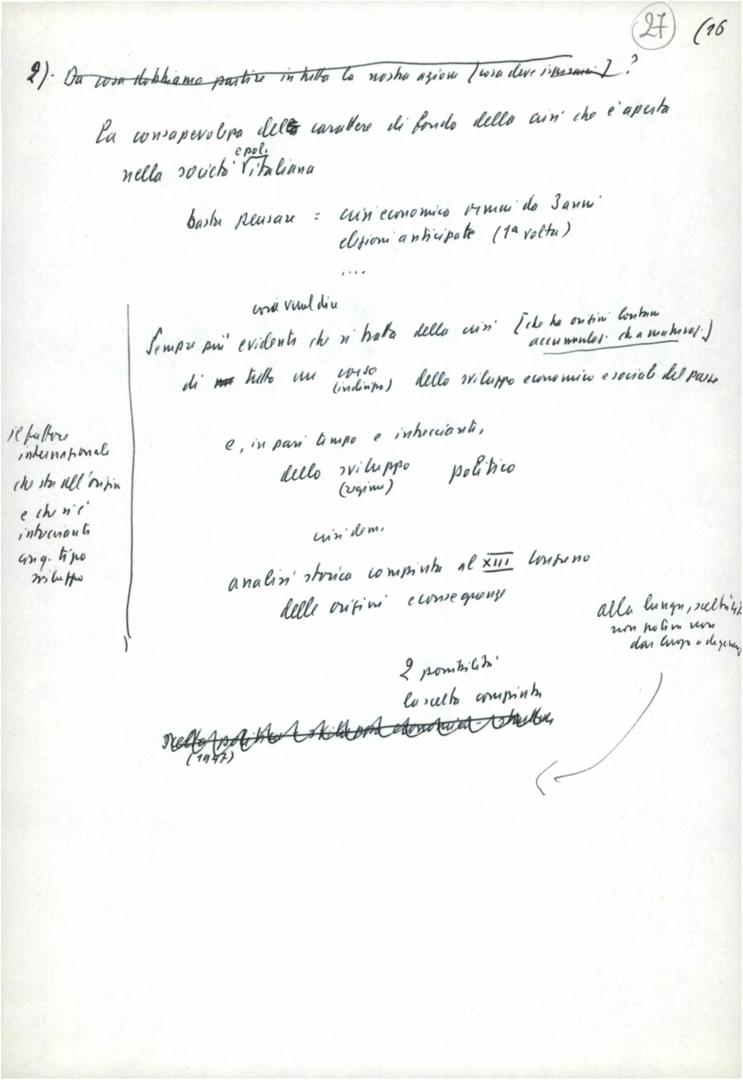 27 (16
2). Da cosa dobbiamo partire in tutta la nostra azione [cosa deve ] ?
La consapevolezza del carattere di fondo della crisi che è aperta
e pol.
nella società italiana
basta pensare = crisi economica ormai da 3 anni
elezioni anticipate (1ª volta)
....
cosa vuol dire
Sempre più evidente che si tratta della crisi [che ha origini lontane
accumulat. che maturaz.]
di tutto un corso dello sviluppo economico e sociale del paese
(indirizzo)
e, in pari tempo e intreccianti,
dello sviluppo politico
(regime)
crisi dem.
analisi storica compiuta al XIII Congresso
delle origini e conseguenze
il fattore
internazionale
che sta all'origin
e che si è
intrecciante
tipo
sviluppo
alla lunga,
non poteva non
dar luogo a
2 possibilità
la scelta compiuta
(1947)